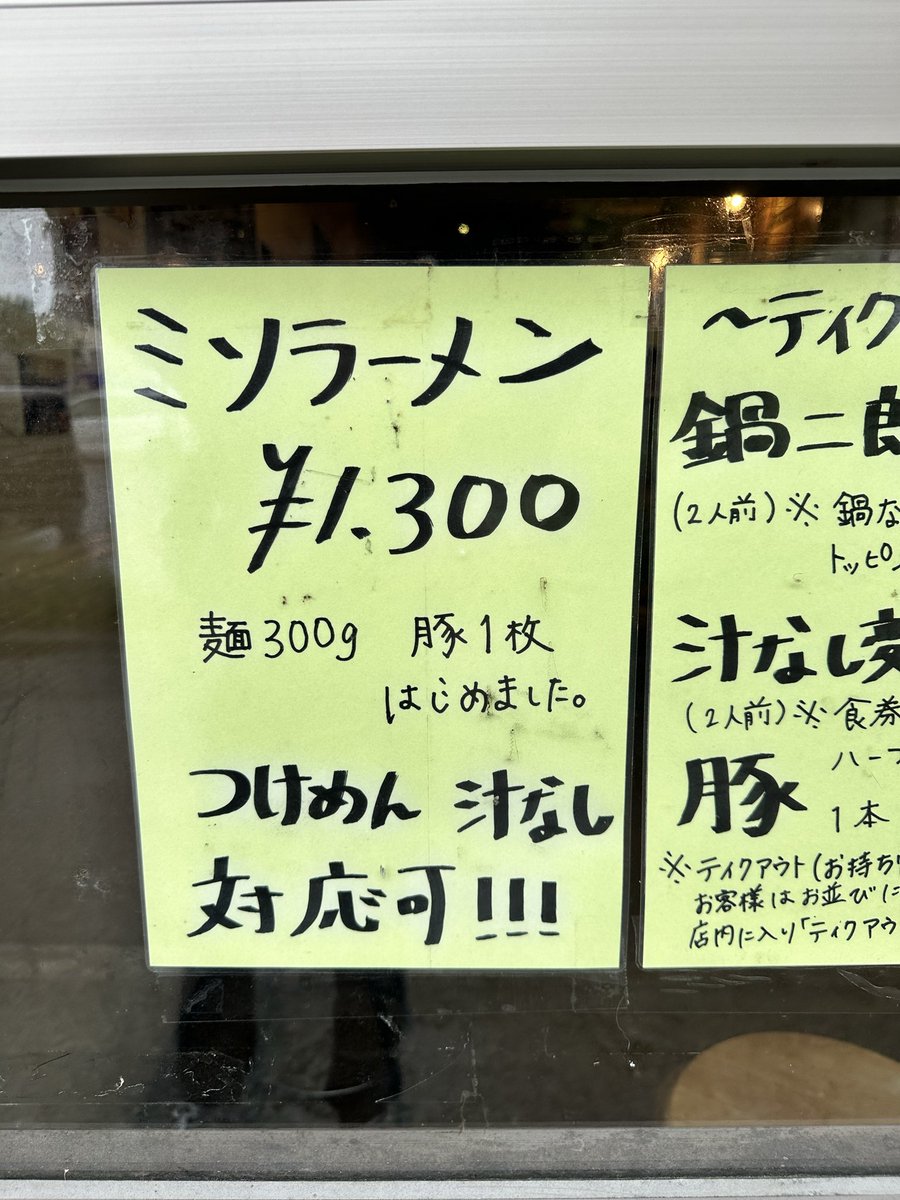 ミソラーメン
¥1.300
麺300g 豚1枚
はじめました。
つけめん 汁なし
対応可!!!
～テイク
鍋二郎
(2人前)※ 鍋な
トッピン
汁なし
(2人前)※ 食券
ハーフ
豚 1本
※テイクアウト(お持ち
お客様はお並びに
店内に入り「テイクアウ